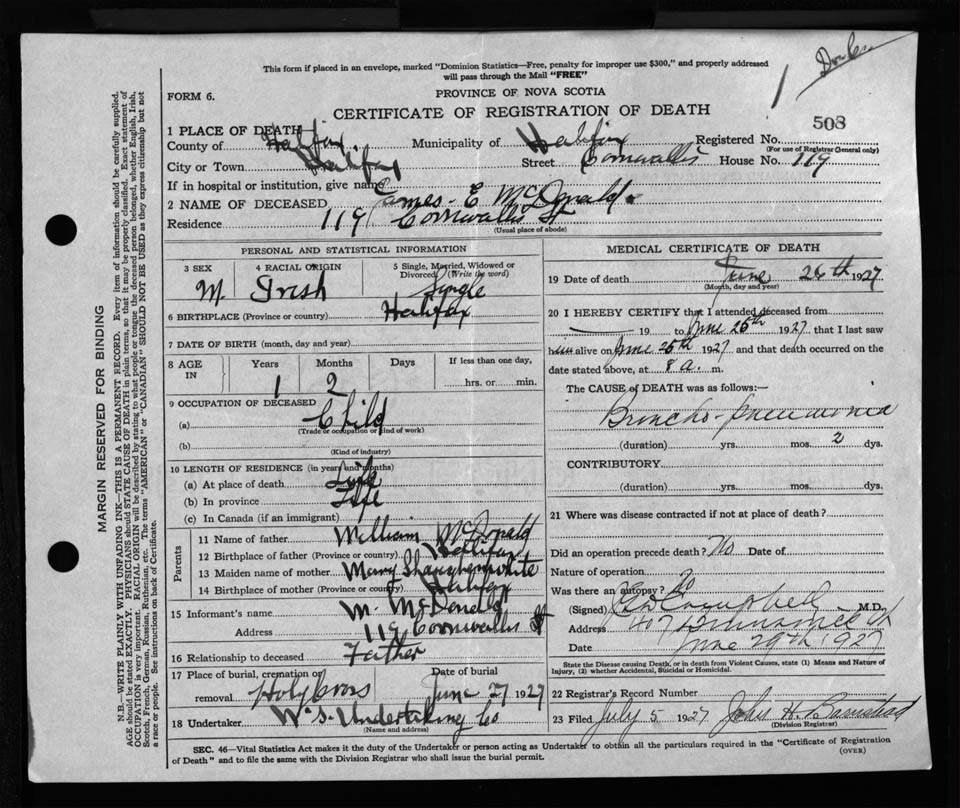 This form if placed in an envelope, marked "Dominion Statistics—Free, penalty for improper use $300," and properly addressed
will pass through the Mail "FREE"
PROVINCE OF NOVA SCOTIA
FORM 6.
CERTIFICATE OF REGISTRATION OF DEATH
508
1 PLACE OF DEATH
County of Halifax Municipality of Halifax Registered No.
(For use of Registrar General only)
City or Town Halifax Street Cornwallis House No. 119
If in hospital or institution, give name
2 NAME OF DECEASED James - E McDonald
Residence 119 Cornwallis St
(Usual place of abode)
PERSONAL AND STATISTICAL INFORMATION
3 SEX 4 RACIAL ORIGIN 5 Single, Married, Widowed or
Divorced (Write the word)
M. Irish Single
6 BIRTHPLACE (Province or country) Halifax
7 DATE OF BIRTH (month, day and year)
8 AGE IN Years Months Days If less than one day,
1 2 hrs. or min.
9 OCCUPATION OF DECEASED
(a) Child
(Trade or occupation or kind of work)
(b)
(Kind of industry)
10 LENGTH OF RESIDENCE (in years and months)
(a) At place of death Life
(b) In province Life
(c) In Canada (if an immigrant)
Parents
11 Name of father William McDonald
12 Birthplace of father (Province or country) Halifax
13 Maiden name of mother Mary
14 Birthplace of mother (Province or country) Halifax
15 Informant's name W. McDonald
Address 119 Cornwallis St
16 Relationship to deceased Father
17 Place of burial, cremation or Date of burial
removal Holy Cross June 27 1927
18 Undertaker Undertaking Co
(Name and address)
MEDICAL CERTIFICATE OF DEATH
19 Date of death June 26th 1927
(Month, day and year)
20 I HEREBY CERTIFY that I attended deceased from
19 to June 26th 1927 that I last saw
him alive on June 25th 1927 and that death occurred on the
date stated above, at 8 a. m.
The CAUSE OF DEATH was as follows:—
Broncho-pneumonia
(duration) yrs. mos. 2 dys.
CONTRIBUTORY
(duration) yrs. mos. dys.
21 Where was disease contracted if not at place of death?
Did an operation precede death? No Date of
Nature of operation
Was there an autopsy? No
(Signed) Campbell M.D.
Address 407 St
Date June 29th 1927
State the Disease causing Death, or in death from Violent Causes, state (1) Means and Nature of
Injury, (2) whether Accidental, Suicidal or Homicidal.
22 Registrar's Record Number
23 Filed July 5 1927 John H. Barnstead
(Division Registrar)
SEC. 46—Vital Statistics Act makes it the duty of the Undertaker or person acting as Undertaker to obtain all the particulars required in the "Certificate of Registration
of Death" and to file the same with the Division Registrar who shall issue the burial permit.
(OVER)
MARGIN RESERVED FOR BINDING
N.B.—WRITE PLAINLY WITH UNFADING INK—THIS IS A PERMANENT RECORD. Every item of information should be carefully supplied.
AGE should be stated EXACTLY. PHYSICIANS should STATE CAUSE OF DEATH in plain terms, so that it may be properly classified. Exact statement of
OCCUPATION is very important. RACIAL ORIGIN will be described by stating to what people or tongue the deceased person belonged, whether English, Irish,
Scotch, French, German, Russian, Ruthenian, etc. The terms "AMERICAN" or "CANADIAN" SHOULD NOT BE USED as they express citizenship but not
a race or people. See instructions on back of Certificate.